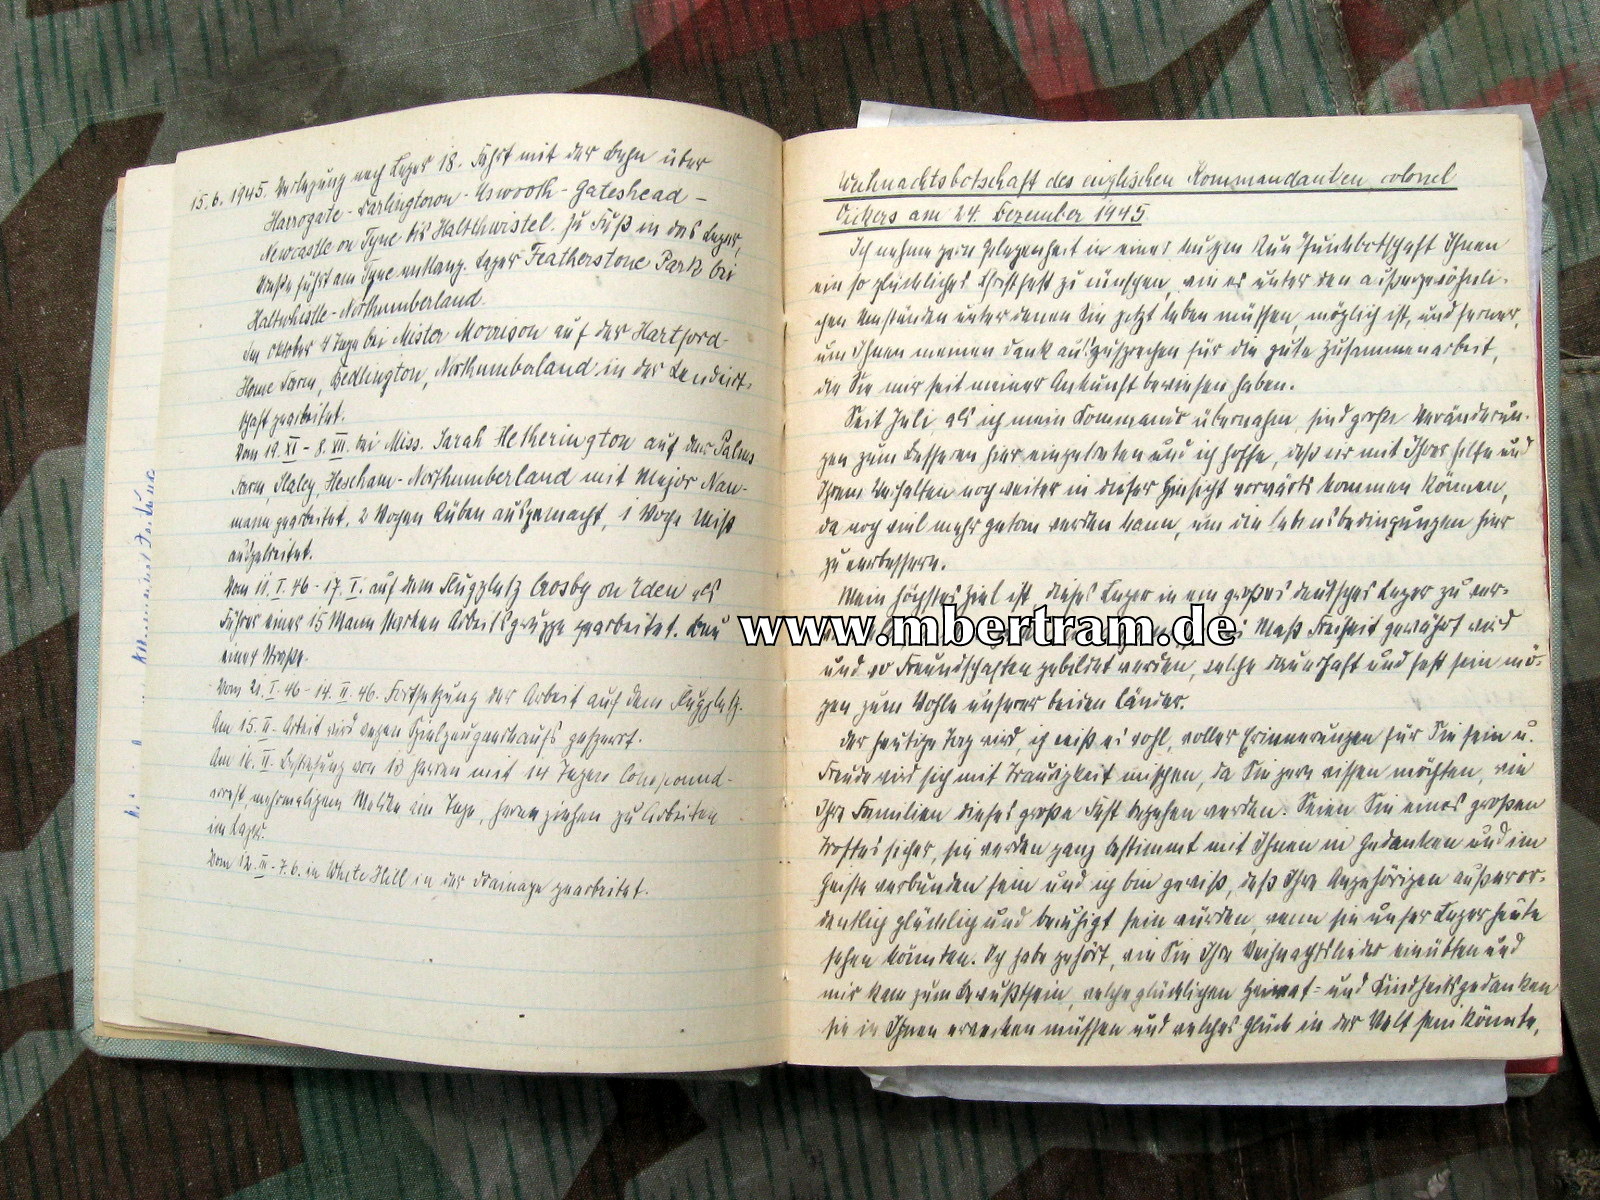 15.6.1945. Verlegung nach Lager 18. Fahrt mit der Bahn über
Harrogate - Darlingtown - - Gateshead -
Newcastle on Tyne bis Haltwhistel. Zu Fuß in das Lager,
Straße führt am Tyne entlang. Lager Featherstone Park bei
Haltwhistle - Northumberland.
Im Oktober 4 Tage bei Mister Morrison auf der Hartford-
Home Farm, Bedlington, Northumberland in der Landwirt-
schaft gearbeitet.
Vom 19. XI - 8. XII. bei Miss. Sarah Hetherington auf der Palms
Farm Slaley, Hescham - Northumberland mit Major Nau-
mann gearbeitet, 2 Wochen Rüben ausgemacht, 1 Woche Mist
ausgebreitet.
Vom 11. I. 46 - 17. I. auf dem Flugplatz Crosby on Eden als
Führer einer 15 Mann starken Arbeitsgruppe gearbeitet. Bau
einer Straße.
Vom 21. I. 46 - 14. II. 46. Fortsetzung der Arbeit auf dem Flugplatz.
Am 15. II. Arbeit wird wegen Spielzeugverkaufs gesperrt.
Am 16. II. Bestrafung von 13 Herren mit 14 Tagen Compound-
arrest, mehrmaligem Melden am Tage, heranziehen zu Arbeiten
im Lager.
Vom 12. - 7.6. in White Hill in der Drainage gearbeitet.
Weihnachtsbotschaft des englischen Kommandanten colonel
Vickers am 24. Dezember 1945
Ich nehme gern Gelegenheit in einer kurzen Rundfunkbotschaft Ihnen
ein so glückliches Christfest zu wünschen, wie es unter den außergewöhnli-
chen Umständen unter denen Sie jetzt leben müssen, möglich ist, und ferner,
um Ihnen meinen Dank auszusprechen für die gute Zusammenarbeit,
die Sie mir seit meiner Ankunft bewiesen haben.
Seit Juli, als ich mein Kommando übernahm, sind große Veränderun-
gen zum Besseren hier eingetreten und ich hoffe, daß wir mit Ihrer Hilfe und
Ihrem Verhalten noch weiter in dieser Hinsicht vorwärts kommen können,
da noch viel mehr getan werden kann, um die Lebensbedingungen hier
zu verbessern.
Mein höchstes Ziel ist, dieses Lager in ein großes deutsches Lager zu ver-
www.mbertram.de Maß Freiheit gewährt wird
und wo Freundschaften gebildet werden, welche dauerhaft und fest sein mö-
gen zum Wohle unserer beiden Länder.
Der heutige Tag wird, ich weiß es wohl, voller Erinnerungen für Sie sein u.
Freude wird sich mit Traurigkeit mischen, da Sie gern wissen möchten, wie
Ihre Familien dieses große Fest begehen werden. Seien Sie eines großen
Trostes sicher, sie werden ganz bestimmt mit Ihnen in Gedanken und im
Geiste verbunden sein und ich bin gewiß, daß Ihre Angehörigen außeror-
dentlich glücklich und beruhigt sein würden, wenn sie unser Lager heute
sehen könnten. Ich habe gehört, wie Sie Ihre Weihnachtslieder einübten und
mir kam zum Bewußtsein, welche glücklichen Heimat- und Kindheitsgedanken
sie in Ihnen erwecken müssen und welches Glück in der Welt sein könnte,